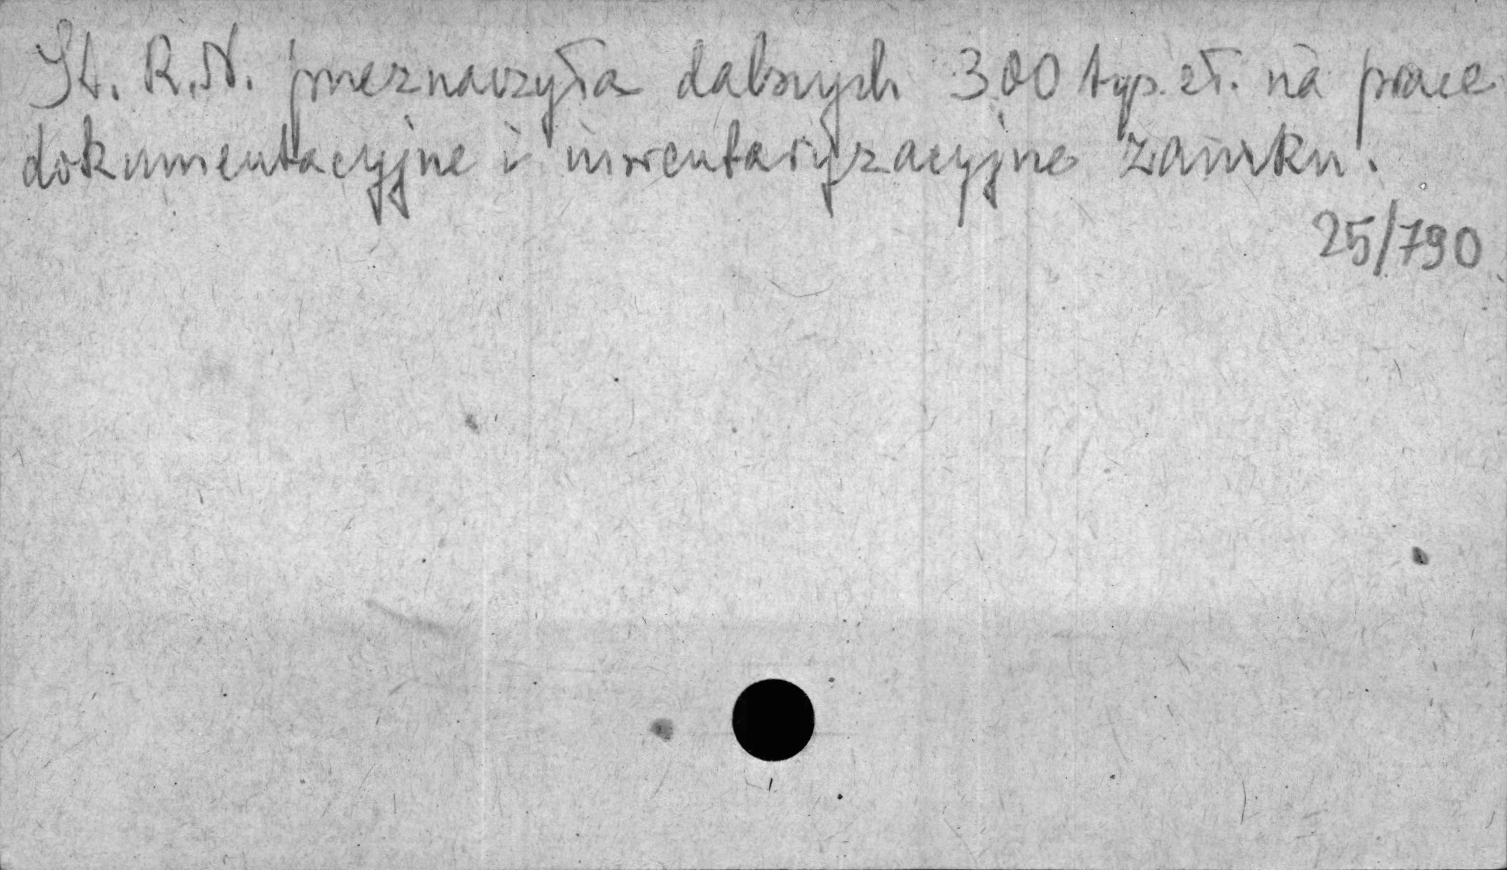 St. R.N. przeznaczyła dalszych 300 tys. zł. na prace
dokumentacyjne i inwentaryzacyjne zamku.
25/790